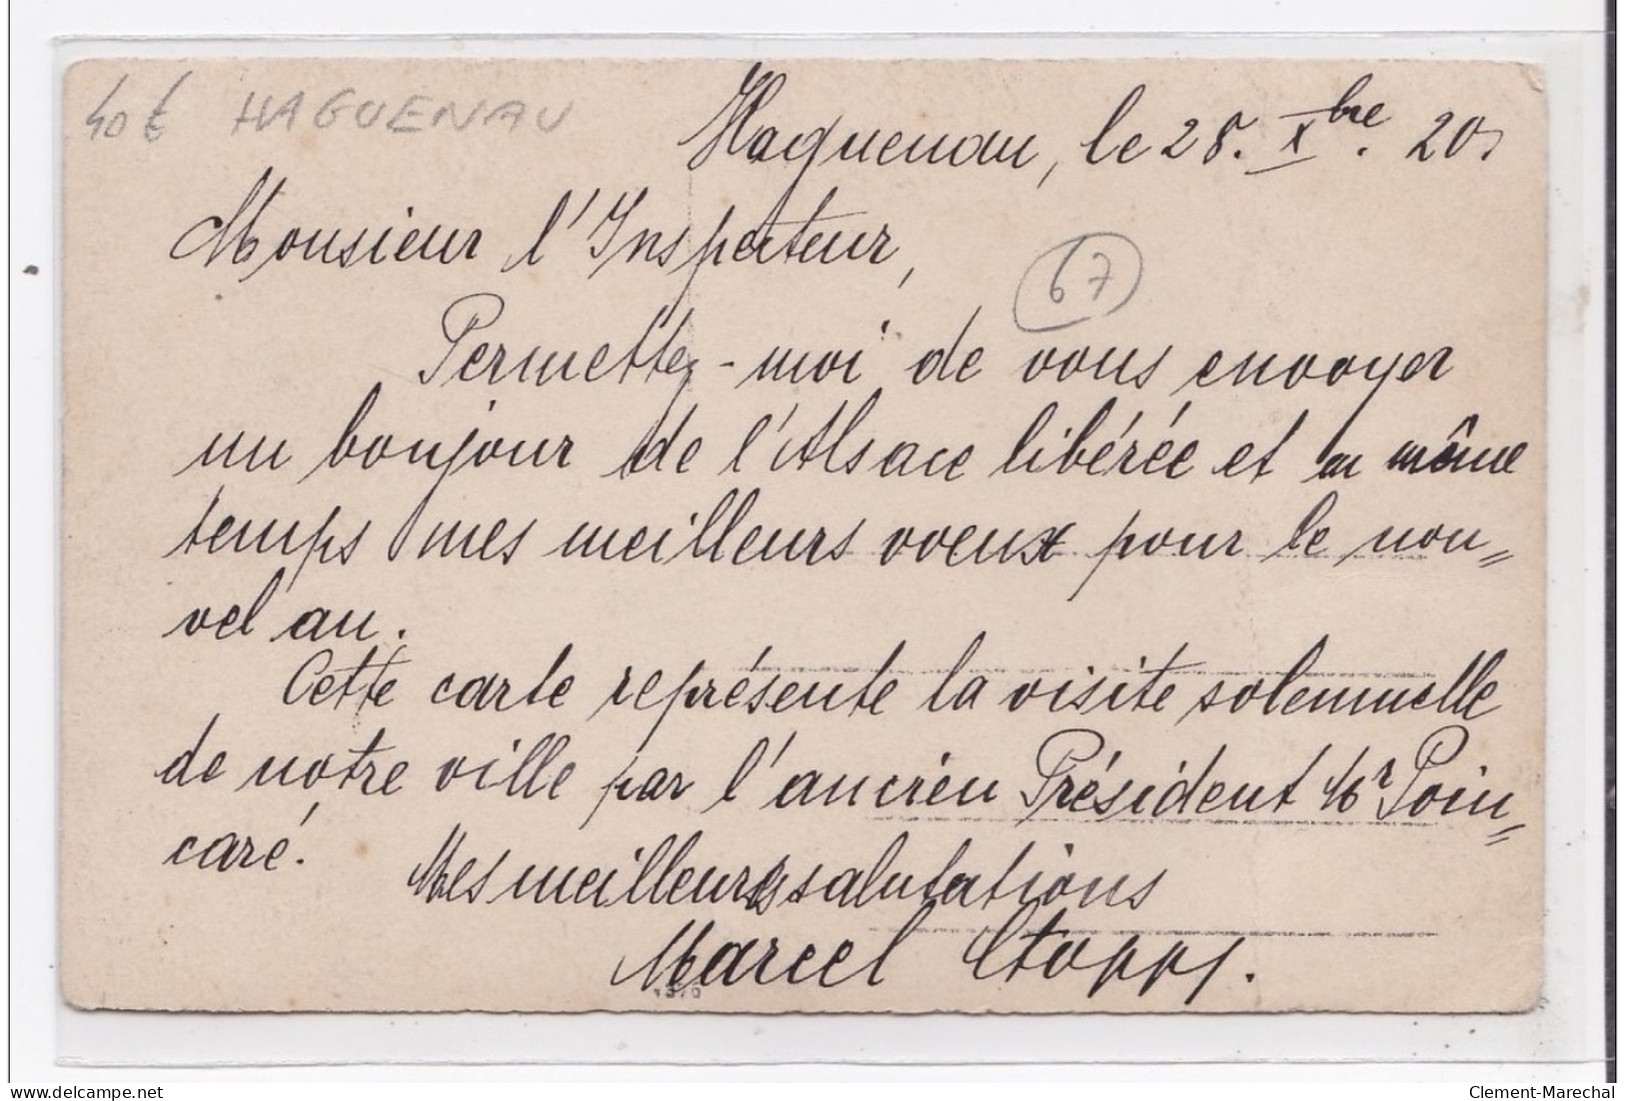 40€ HAGUENAU
Haguenau, le 28. Xbre. 20.
Monsieur l'Inspecteur,
67
Permettez-moi de vous envoyer
un bonjour de l'Alsace libérée et en même
temps mes meilleurs voeux pour le nou=
vel an.
Cette carte représente la visite solennelle
de notre ville par l'ancien Président Mr Poin=
caré.
Mes meilleures salutations
Marcel
delcampe.net
Clement-Marechal